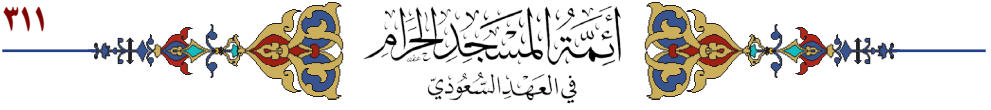 ٣١١
أَئِمَّةُ المَسْجِدِ الحَرَامِ
فِي العَهْدِ السُّعُودِيِّ